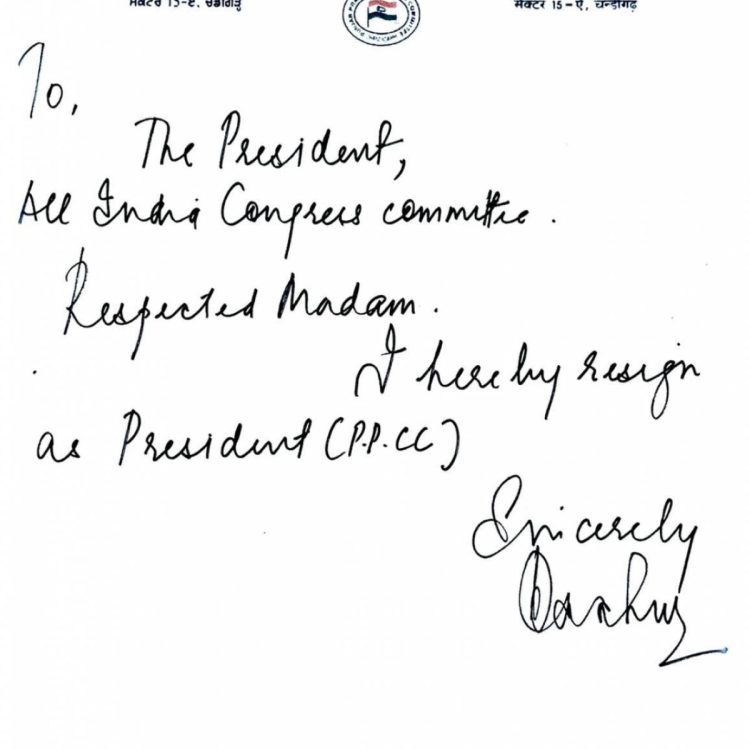 ਸੈਕਟਰ 15-ਏ, ਚੰਡੀਗੜ੍ਹ
सैक्टर 15-ऐ, चन्डीगढ़
To,
The President,
All India Congress committee.
Respected Madam.
I hereby resign
as President (P.P.CC)
Sincerely